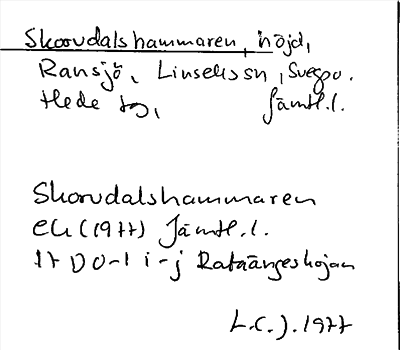 Skorvdalshammaren, höjd,
Ransjö, Linsells sn, Svegs
Hede tg, Jämtl.l.
Skorvdalshammaren
ek (1977) Jämtl.l.
17 D 0-1 i-j Rataängeshöjan
L.C.J. 1977